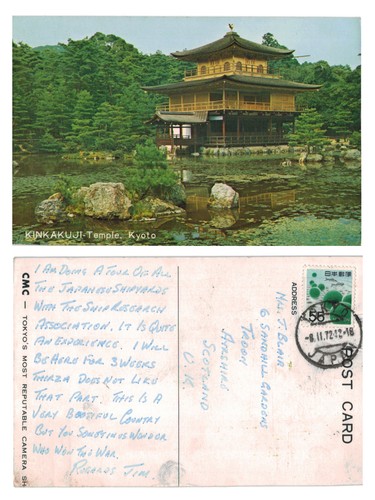 KINKAKUJI-Temple, Kyoto
CMC — TOKYO'S MOST REPUTABLE CAMERA SH
I AM DOING A TOUR OF ALL
THE JAPANESE SHIPYARDS
WITH THE SHIP RESEARCH
ASSOCIATION. IT IS QUITE
AN EXPERIENCE. I WILL
BE HERE FOR 3 WEEKS
THIRZA DOES NOT LIKE
THAT PART. THIS IS A
VERY BEAUTIFUL COUNTRY
BUT YOU SOMETIMES WONDER
WHO WON THE WAR.
REGARDS JIM.
ADDRESS
MRS. J. BLAIR
6 SANDHILL GARDENS
TROON
AYRSHIRE
SCOTLAND
U.K.
日本郵便
POST CARD